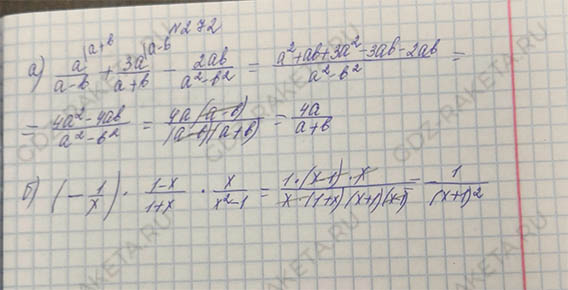 №272
а) a/(a-b) |a+b + 3a/(a+b) |a-b - 2ab/(a²-b²) = (a²+ab+3a²-3ab-2ab)/(a²-b²) =
= (4a²-4ab)/(a²-b²) = 4a(a-b)/((a-b)(a+b)) = 4a/(a+b)
б) (-1/x) · (1-x)/(1+x) · x/(x²-1) = 1·(x-1)·x/(x·(1+x)(x+1)(x-1)) = 1/(x+1)²
GDZ-RAKETA.RU